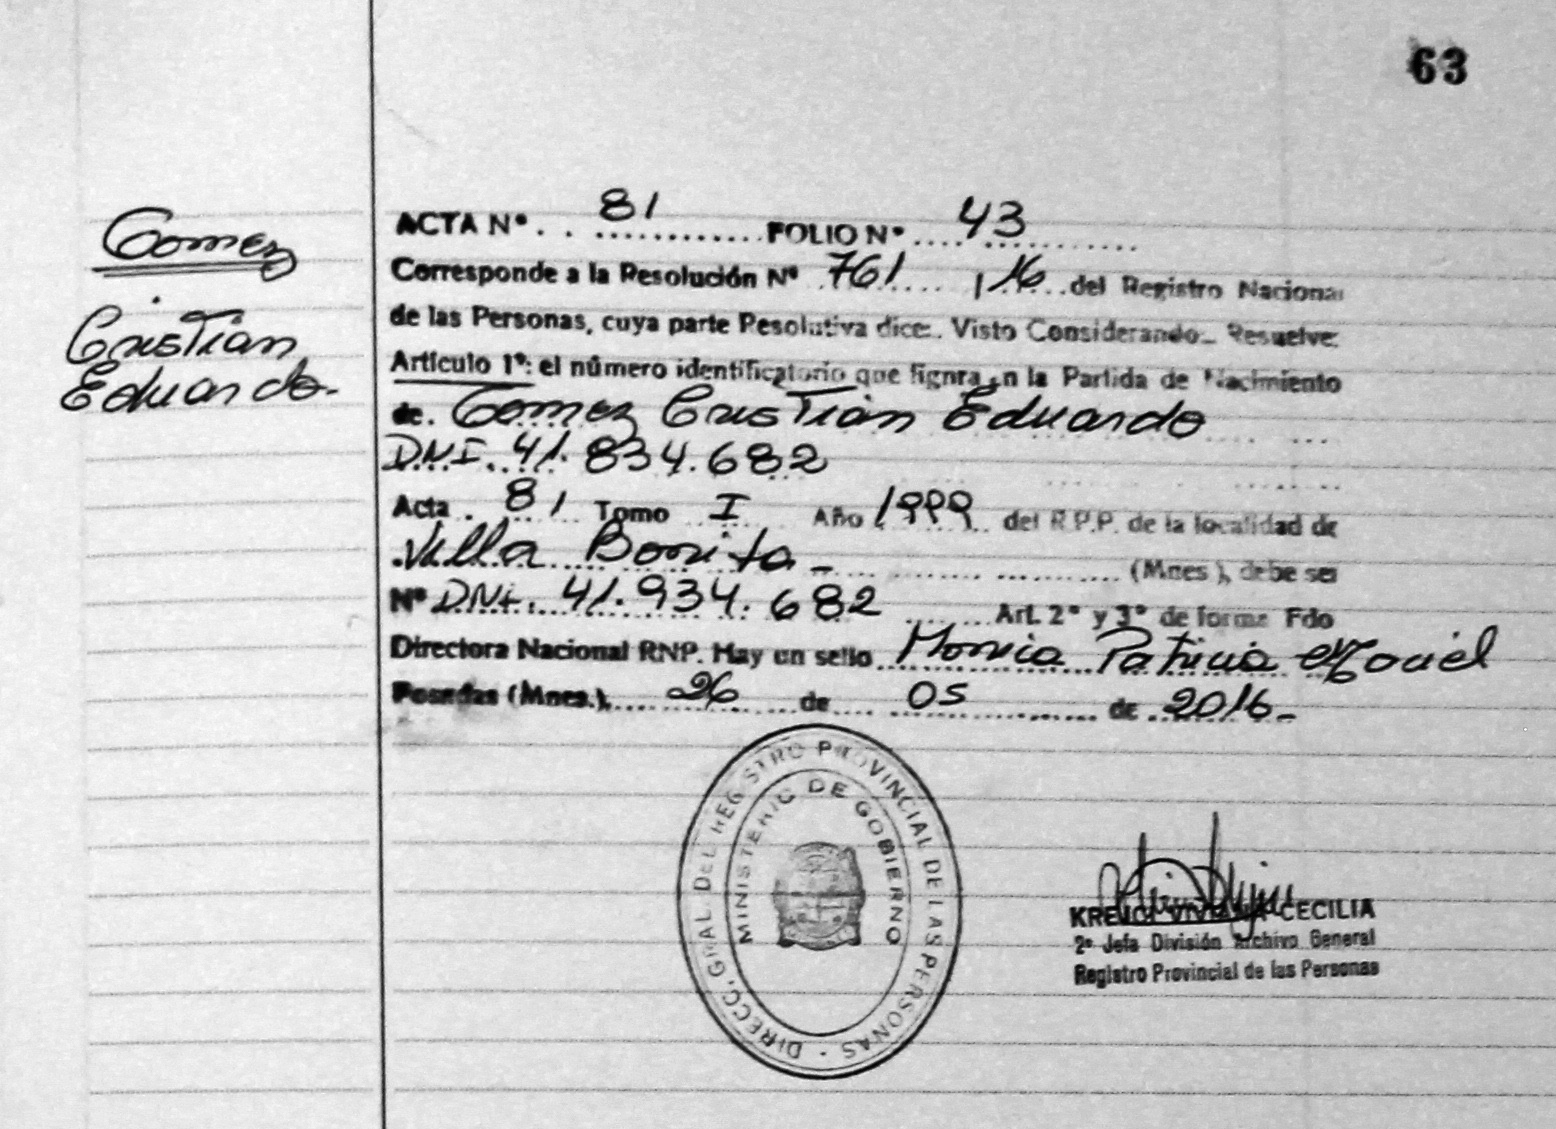 63
Gomez
Cristian
Eduardo-
ACTA Nº . . 81 ............ FOLIO Nº .... 43 ............
Corresponde a la Resolución Nº .761.... /16...del Registro Nacional
de las Personas, cuya parte Resolutiva dice:. Visto Considerando_ Resuelve:
Artículo 1º: el número identificatorio que fignra en la Partida de Nacimiento
de. Gomez Cristian Eduardo .... ...
DNI. 41.834.682
Acta . 81 Tomo I Año 1999 .. del R.P.P. de la localidad de
.Villa Bonita - ............ (Mnes), debe ser
Nº DNI. 41.934.682 ...... Art. 2º y 3º de forma Fdo
Directora Nacional RNP. Hay un sello Monica Patricia Maciel
Posadas (Mnes.),.... 26 ....de.... 05 ............ de 2016-
DIRECC. GRAL. DEL REGISTRO PROVINCIAL DE LAS PERSONAS ·
MINISTERIO DE GOBIERNO
KREJCI VIVIANA CECILIA
2º Jefa División Archivo General
Registro Provincial de las Personas